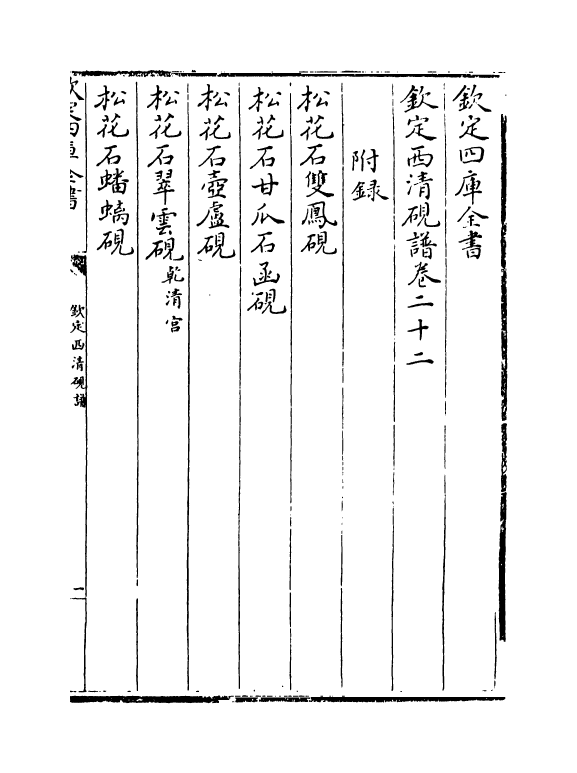 欽定四庫全書
欽定西清硯譜卷二十二
附録
松花石雙鳳硯
松花石甘瓜石函硯
松花石壺盧硯
松花石翠雲硯乾清宫
松花石蟠螭硯
欽定四庫全書
欽定西清硯譜
一